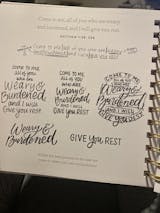 Come to me, all of you who are weary
and burdened, and I will give you rest.
MATTHEW 11:28
Come to me all of you who are weary
and burdened and I will give you rest
COME TO ME
all of you
who are
Weary &
Burdened
and I will
Give you rest
COME TO ME
ALL OF YOU
WHO ARE
Weary &
Burdened
and I will
GIVE YOU
REST
COME TO ME
ALL OF YOU
WHO ARE
Weary &
Burdened
AND I WILL
GIVE YOU REST
Weary &
Burdened
GIVE YOU REST